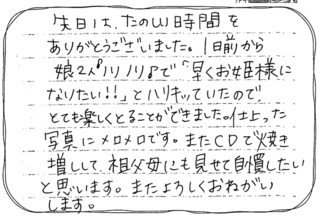 先日は、たのしい時間を
ありがとうございました。1日前から
娘2人♪ノリノリ♪で「早くお姫様に
なりたい!!」とハリキッていたので
とても楽しくとることができました。仕上った
写真にメロメロです。またCDで焼き
増しして、相父母にも見せて自慣したい
と思います。またよろしくおねがい
します。